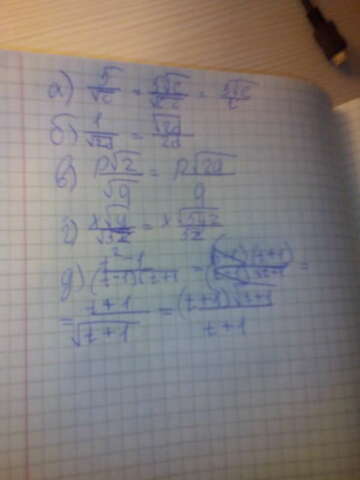 а) 5/√c = 5√c/√c·c = 5√c/c
б) 1/√2a = √2a/2a
в) p√2/√g = p√2g/g
г) x√y/√5z =
д) t²-1/(t-1)√t+1 = (t-1)(t+1)/(t-1)√t+1 =
= t+1/√t+1 = (t+1)√t+1/t+1